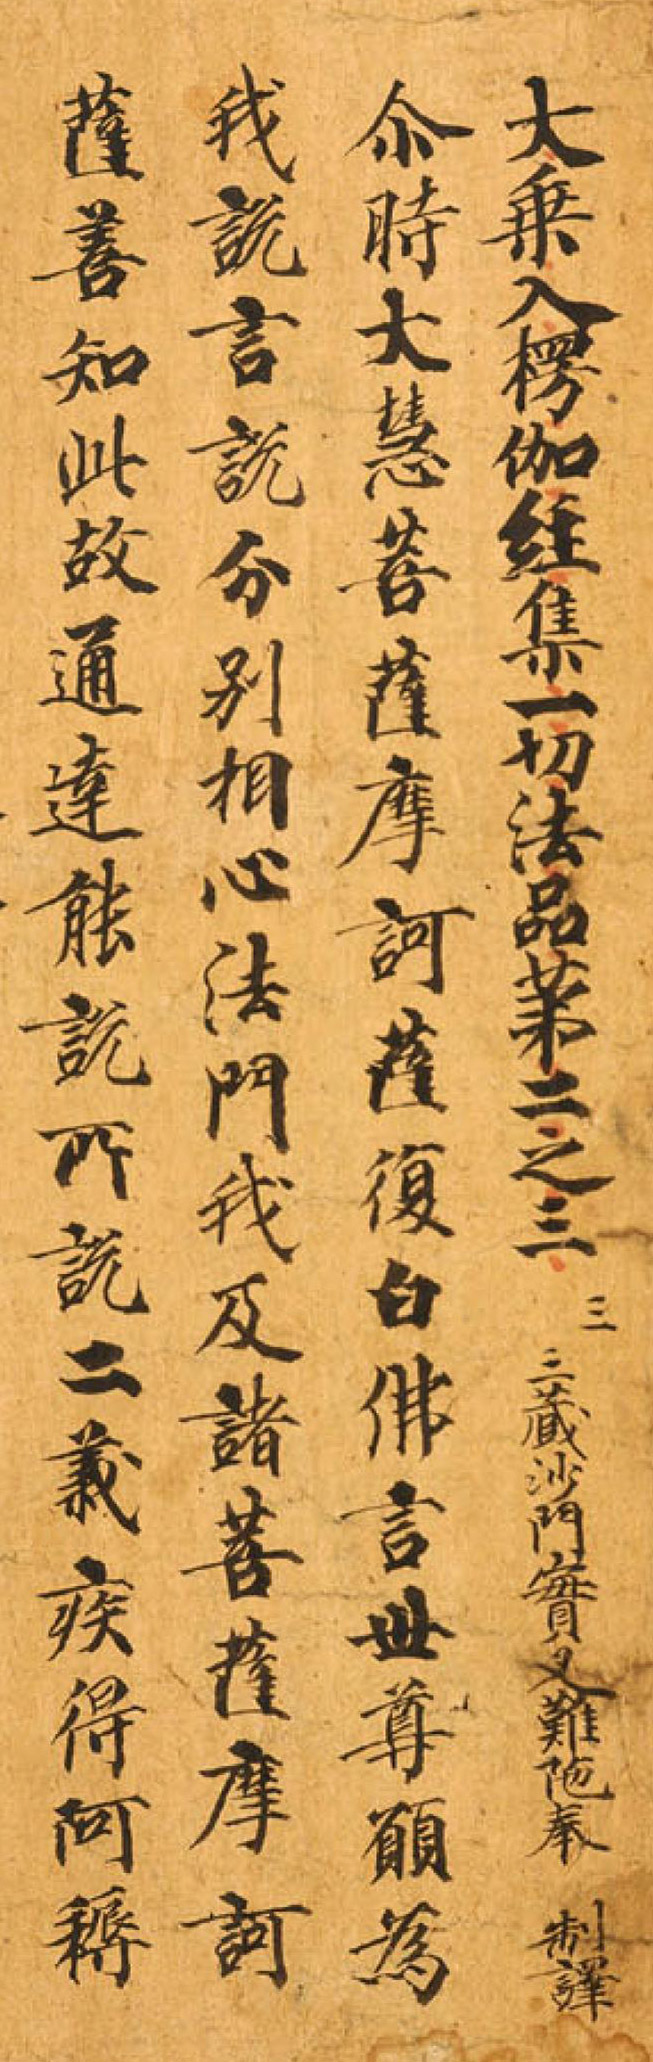 大乗入楞伽經集一切法品苐二之三 三 三藏沙門實叉難陁奉 制譯
尒時大慧菩薩摩訶薩復白佛言世尊願為
我說言說分別相心法門我及諸菩薩摩訶
薩善知此故通達能說所說二義疾得阿耨